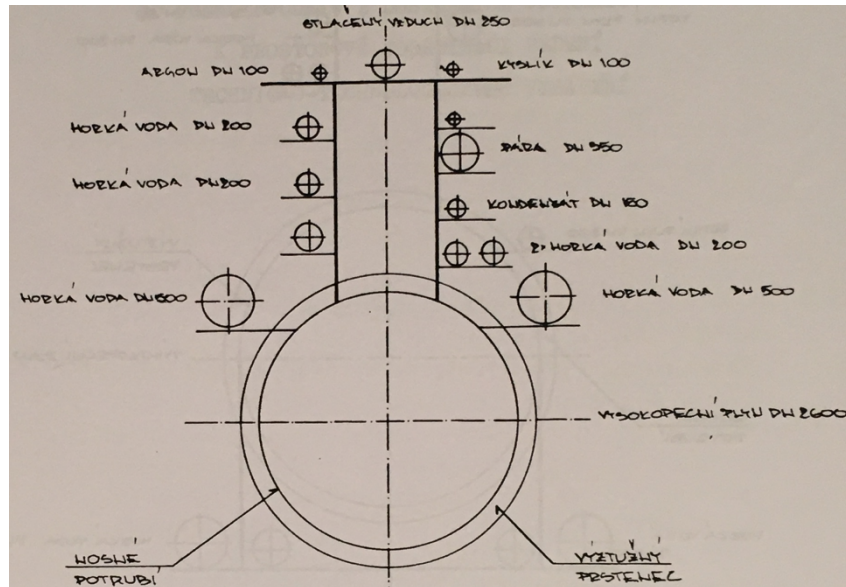 STLAČENÝ VZDUCH DN 250
ARGON DN 100
KYSLÍK DN 100
HORKÁ VODA DN 200
PÁRA DN 350
HORKÁ VODA DN 200
KONDENZÁT DN 150
2× HORKÁ VODA DN 200
HORKÁ VODA DN 500
HORKÁ VODA DN 500
VYSOKOPECNÍ PLYN DN 2600
NOSNÉ
POTRUBÍ
VÝZTUŽNÝ
PRSTENEC